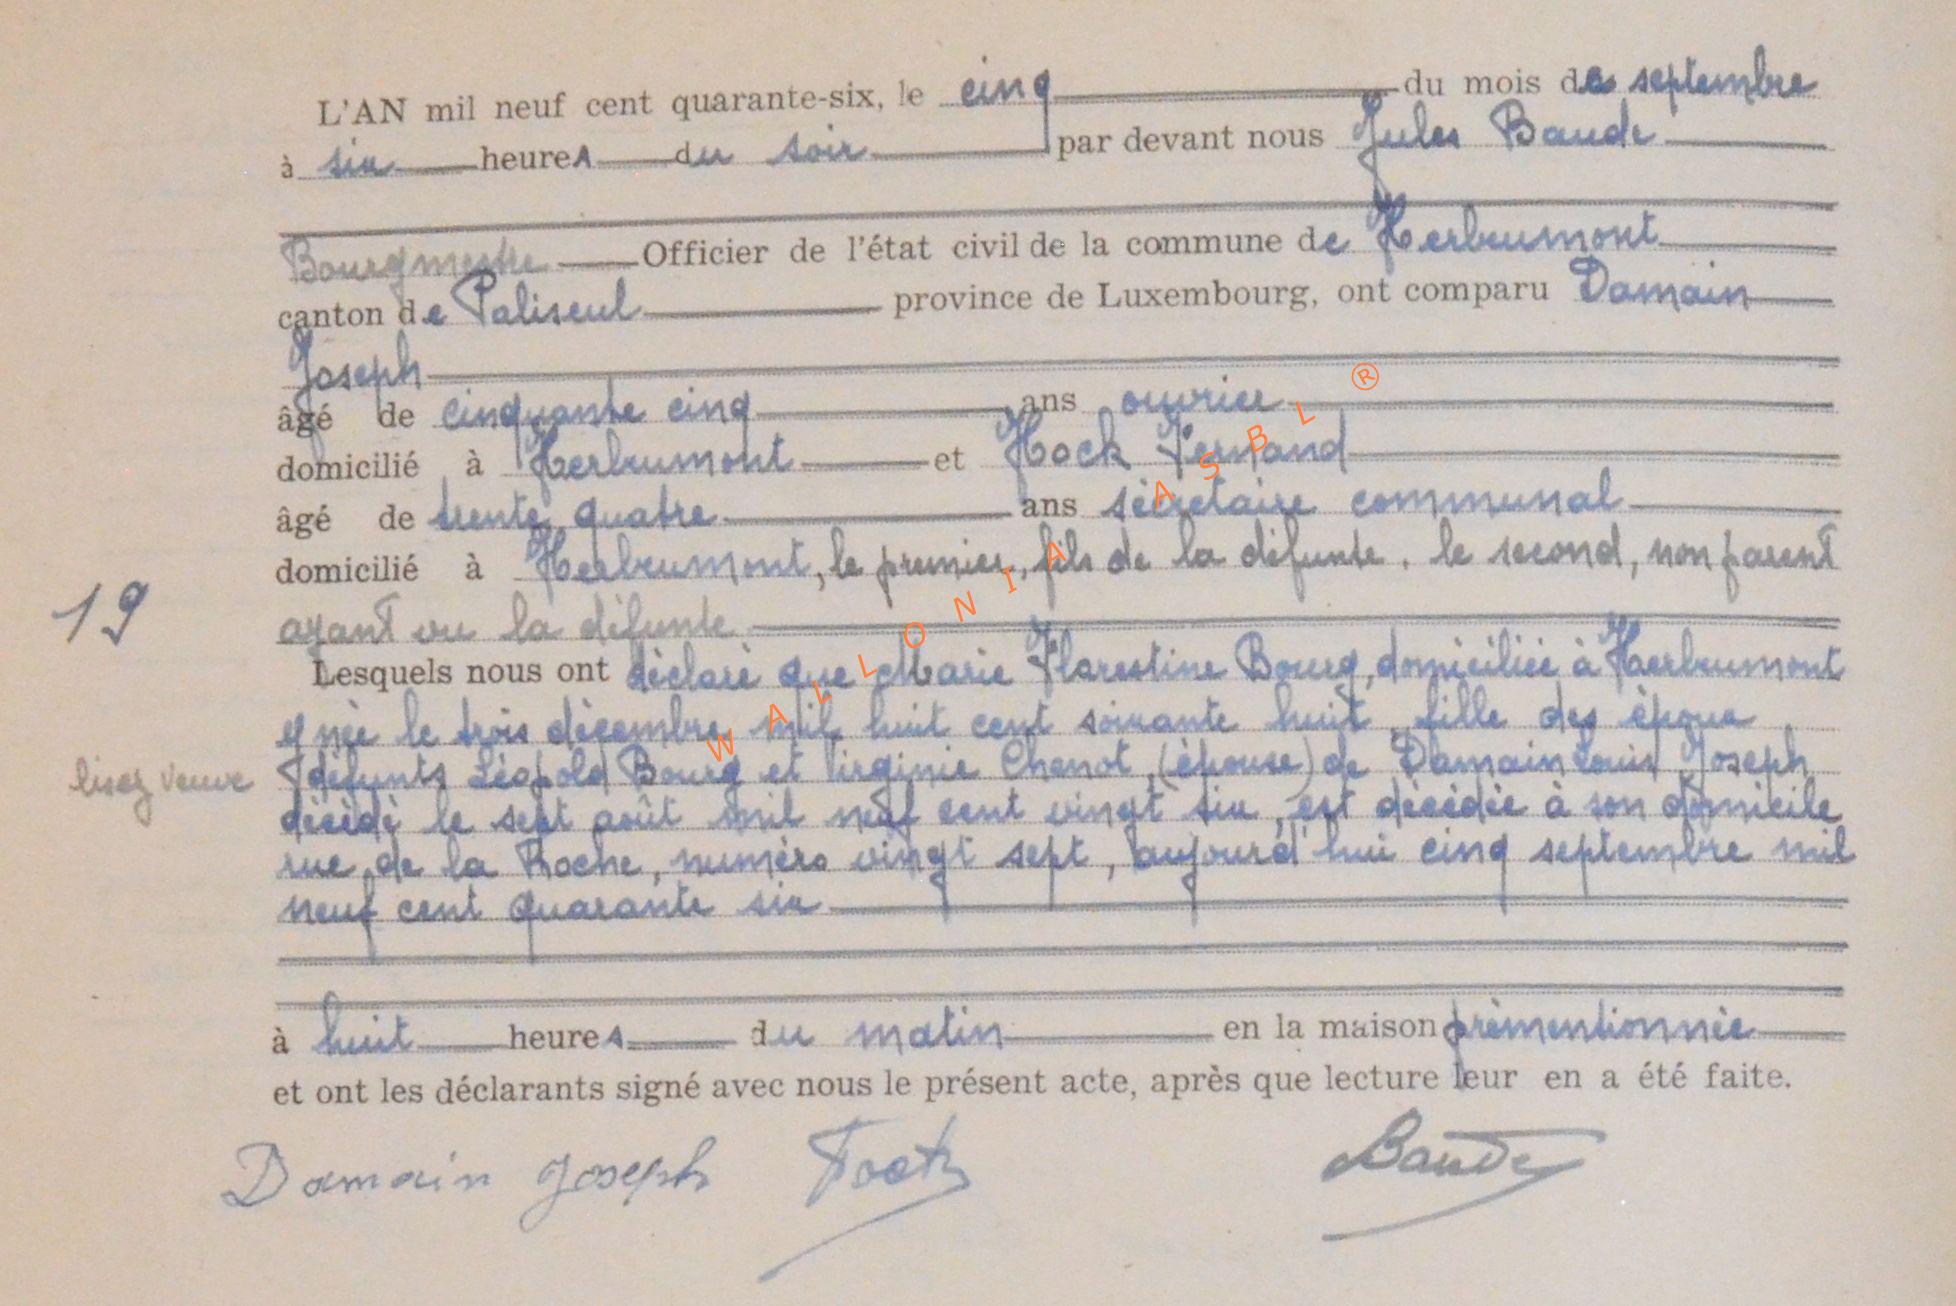 L'AN mil neuf cent quarante-six, le cinq du mois de septembre
à six heures du soir par devant nous Jules Baude
Bourgmestre Officier de l'état civil de la commune de Herbeumont
canton de Paliseul province de Luxembourg, ont comparu Damain
Joseph
âgé de cinquante cinq ans ouvrier
domicilié à Herbeumont et Hock Fernand
âgé de trente quatre ans secrétaire communal
domicilié à Herbeumont, le premier, fils de la défunte, le second, non parent
19
ayant vu la défunte
Lesquels nous ont déclaré que Marie Florestine Bourg, domiciliée à Herbeumont
y née le trois décembre mil huit cent soixante huit, fille des époux
lisez veuve
défunts Léopold Bourg et Virginie Chenot, (épouse) de Damain Louis Joseph
décédé le sept août mil neuf cent vingt six, est décédée à son domicile
rue de la Roche, numéro vingt sept, aujourd'hui cinq septembre mil
neuf cent quarante six
à huit heures du matin en la maison prémentionnée
et ont les déclarants signé avec nous le présent acte, après que lecture leur en a été faite.
Damain Joseph Baude
WALLONIA ASBL ®